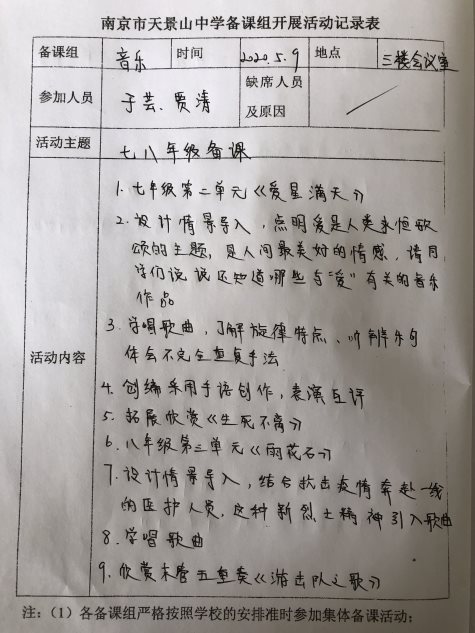 南京市天景山中学备课组开展活动记录表
备课组 音乐 时间 2020.5.9 地点 三楼会议室
参加人员 于芸、贾清 缺席人员及原因
活动主题 七八年级备课
活动内容
1. 七年级第二单元《爱星满天》
2. 设计情景导入，点明爱是人类永恒歌
颂的主题，是人间最美好的情感，请同
学们说说还知道哪些与“爱”有关的音乐
作品
3. 学唱歌曲，了解旋律特点、听辨乐句
体会不完全重复手法
4. 创编采用手语创作，表演互评
5. 拓展欣赏《生死不离》
6. 八年级第三单元《雨花石》
7. 设计情景导入，结合抗击疫情奔赴一线
的医护人员，这种新烈士精神引入歌曲
8. 学唱歌曲
9. 欣赏木管五重奏《游击队之歌》
注：（1）各备课组严格按照学校的安排准时参加集体备课活动；